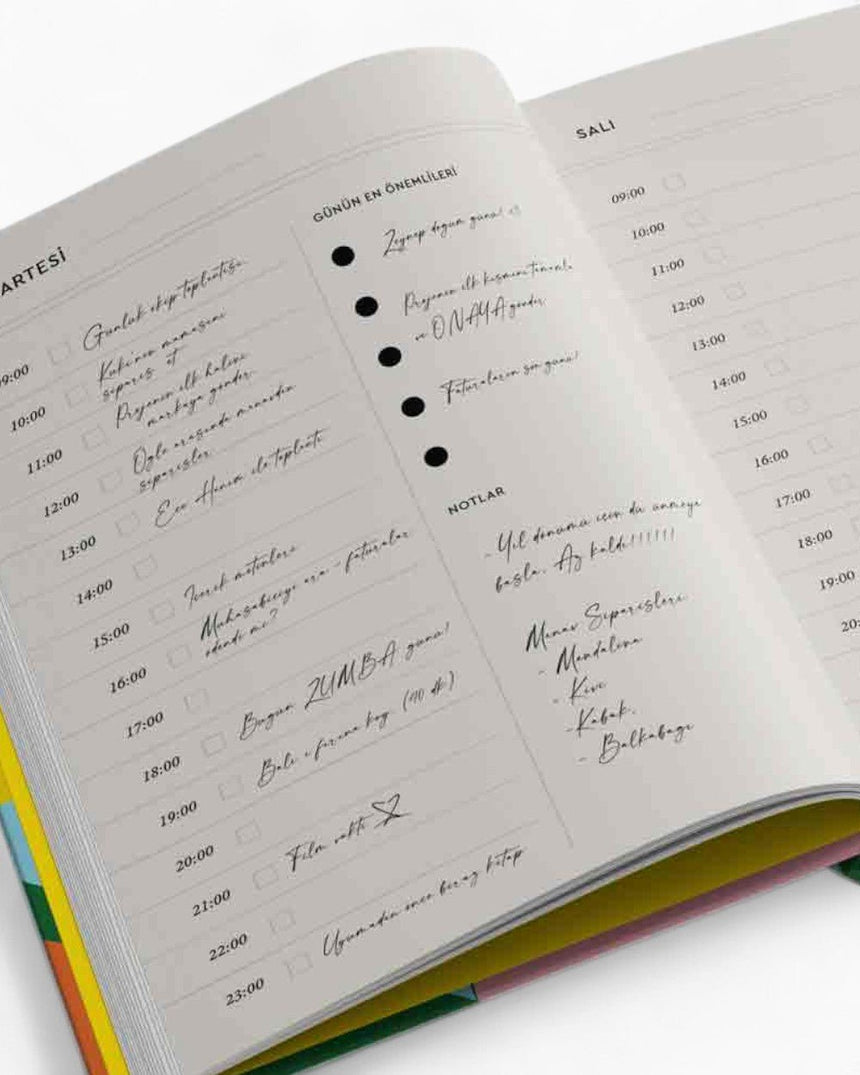 ARTESİ
09:00 Günlük ekip toplantısı
10:00 Kuki'nin mamasını
sipariş et
11:00 Projenin ilk halini
markaya gönder.
12:00 Öğle arasında manavdan
siparişler
13:00 Ece Hanım ile toplantı
14:00
15:00 İçerik metinleri
16:00 Muhasebeciyi ara - faturalar
ödendi mi?
17:00
18:00 Bugün ZUMBA günü!
19:00 Balı ı fırına koy. (40 dk)
20:00
21:00 Film vakti
22:00
23:00 Uyumadan önce biraz kitap
GÜNÜN EN ÖNEMLİLERİ
Zeynep doğum günü! <3
Projenin ilk kısmını tamamla
ve ONAYA gönder.
Faturaların son günü!
NOTLAR
- Yıl dönümü için düşünmeye
başla. Az kaldı!!!!!!!
Manav Siparişleri
- Mandalina
- Kivi
- Kabak.
- Balkabağı
SALI
09:00
10:00
11:00
12:00
13:00
14:00
15:00
16:00
17:00
18:00
19:00
20: